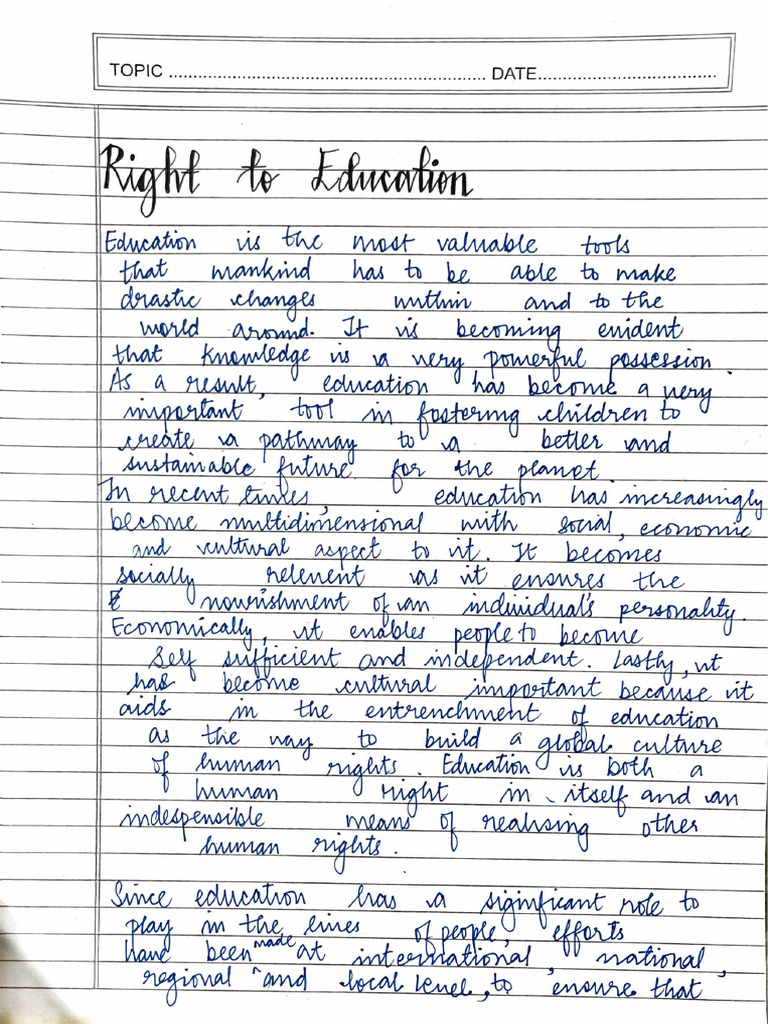 TOPIC ................................................................ DATE....................................
Right to Education
Education is the most valuable tools
that mankind has to be able to make
drastic changes within and to the
world around. It is becoming evident
that knowledge is a very powerful possession.
As a result, education has become a very
important tool in fostering children to
create a pathway to a better and
sustainable future for the planet
In recent times, education has increasingly
become multidimensional with social, economic
and cultural aspect to it. It becomes
socially relevent as it ensures the
nourishment of an individual's personality.
Economically, it enables people to become
self sufficient and independent. Lastly, it
has become cultural important because it
aids in the entrenchment of education
as the way to build a global culture
of human rights. Education is both a
human right in itself and an
indespensible means of realising other
human rights.
Since education has a siginficant role to
play in the lives of people, efforts
have been made at international, national,
regional and local level, to ensure that